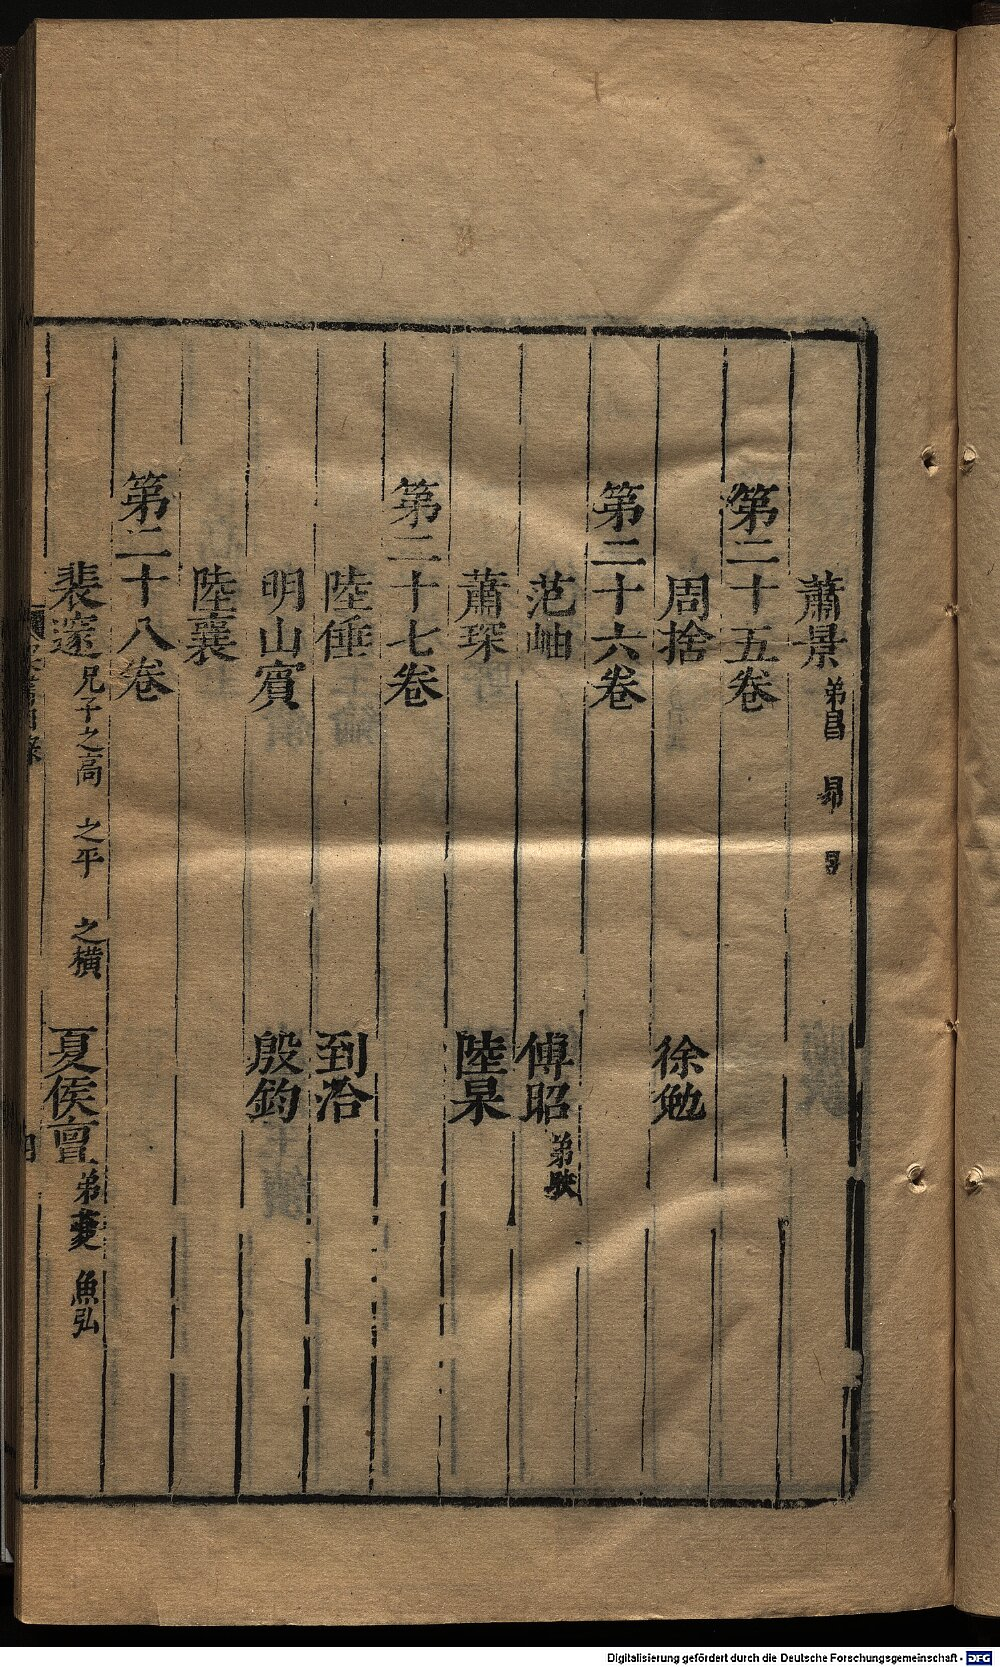 蕭景 弟昌 昻 昱
第二十五卷
周捨 徐勉
第二十六卷
范岫 傅昭 弟映
蕭琛 陸杲
第二十七卷
陸倕 到洽
明山賓 殷鈞
陸襄
第二十八卷
裴邃 兄子之高 之平 之橫 夏侯亶 弟夔 魚弘
Digitalisierung gefördert durch die Deutsche Forschungsgemeinschaft - DFG